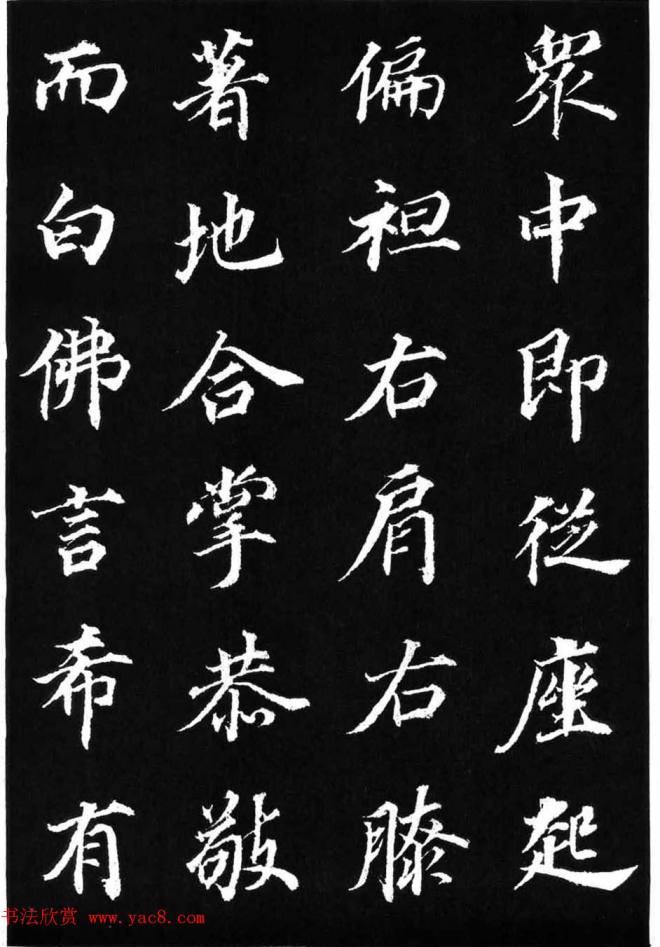 眾中即從座起
偏袒右肩右膝
著地合掌恭敬
而白佛言希有
书法欣赏 www.yac8.com